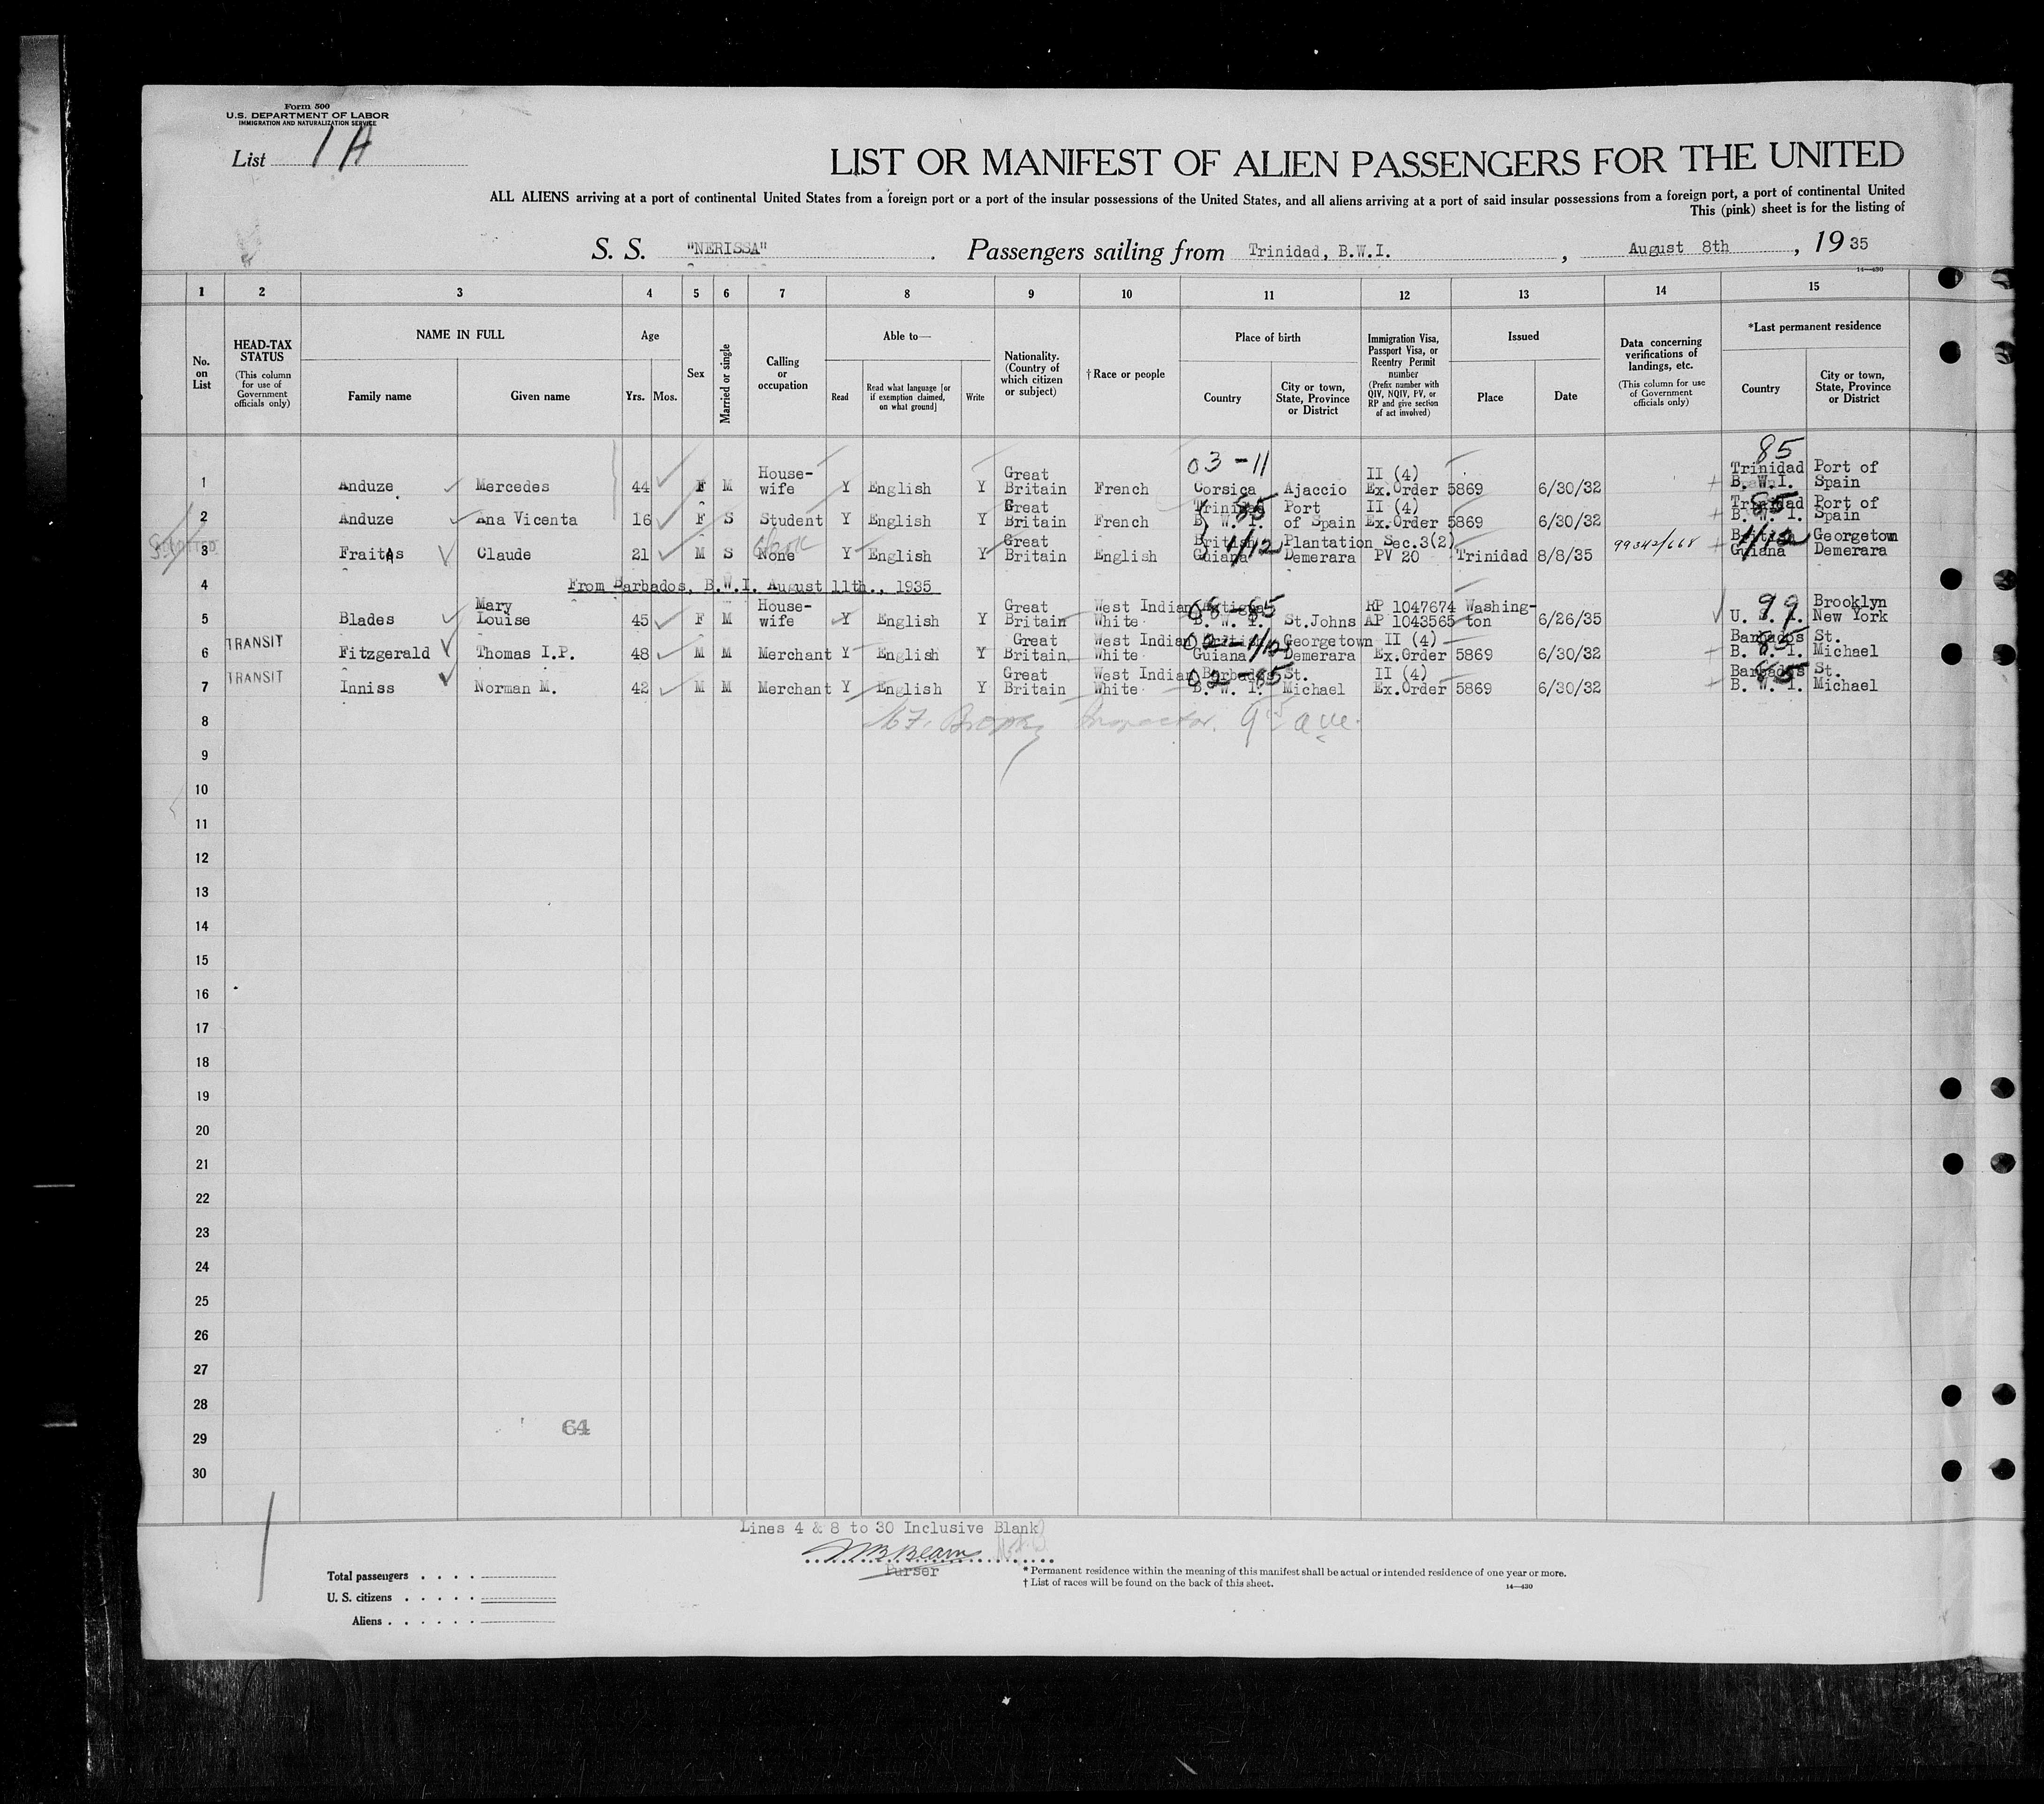 Form 500
U.S. DEPARTMENT OF LABOR
IMMIGRATION AND NATURALIZATION SERVICE
List 1A
LIST OR MANIFEST OF ALIEN PASSENGERS FOR THE UNITED
ALL ALIENS arriving at a port of continental United States from a foreign port or a port of the insular possessions of the United States, and all aliens arriving at a port of said insular possessions from a foreign port, a port of continental United
This (pink) sheet is for the listing of
S. S. "NERISSA" . Passengers sailing from Trinidad, B.W.I. , August 8th , 19 35
14—430
1 2 3 4 5 6 7 8 9 10 11 12 13 14 15
No. on List
HEAD-TAX STATUS (This column for use of Government officials only)
NAME IN FULL Family name Given name
Age Yrs. Mos.
Sex
Married or single
Calling or occupation
Able to— Read Read what language [or if exemption claimed, on what ground] Write
Nationality. (Country of which citizen or subject)
† Race or people
Place of birth Country City or town, State, Province or District
Immigration Visa, Passport Visa, or Reentry Permit number (Prefix number with QIV, NQIV, PV, or RP and give section of act involved)
Issued Place Date
Data concerning verifications of landings, etc. (This column for use of Government officials only)
*Last permanent residence Country City or town, State, Province or District
03-11 85
1 Anduze Mercedes 44 F M House-wife Y English Y Great Britain French Corsica Ajaccio II (4) Ex.Order 5869 6/30/32 Trinidad B.W.I. Port of Spain
2 Anduze Ana Vicenta 16 F S Student Y English Y Great Britain French Trinidad B. W. I. 85 Port of Spain II (4) Ex.Order 5869 6/30/32 Trinidad B. W. I. 85 Port of Spain
ADMITTED
3 Fraitas Claude 21 M S None Y English Y Great Britain English British Guiana 1/12 Plantation Demerara Sec.3(2) PV 20 Trinidad 8/8/35 99342/668 British Guiana 1/12 Georgetown Demerara
4 From Barbados, B.W.I. August 11th., 1935
5 Blades Mary Louise 45 F M House-wife Y English Y Great Britain West Indian White Antigua B. W. I. 08-85 St.Johns RP 1047674 AP 1043565 Washing-ton 6/26/35 U. S. A. 99 Brooklyn New York
6 TRANSIT Fitzgerald Thomas I.P. 48 M M Merchant Y English Y Great Britain West Indian White British Guiana 02-1/12 Georgetown Demerara II (4) Ex.Order 5869 6/30/32 Barbados B. W. I. 85 St. Michael
7 TRANSIT Inniss Norman M. 42 M M Merchant Y English Y Great Britain West Indian White Barbados B. W. I. 02-85 St. Michael II (4) Ex.Order 5869 6/30/32 Barbados B. W. I. 85 St. Michael
8 Inspector.
9
10
11
12
13
14
15
16
17
18
19
20
21
22
23
24
25
26
27
28
64
29
30
Lines 4 & 8 to 30 Inclusive Blank
Purser
Total passengers . . . .
U. S. citizens . . . . .
Aliens . . . . . .
* Permanent residence within the meaning of this manifest shall be actual or intended residence of one year or more.
† List of races will be found on the back of this sheet.
14—430